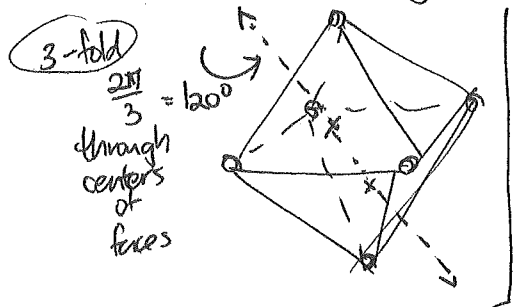 3-fold
2π/3 = 120°
through
centers
of
faces